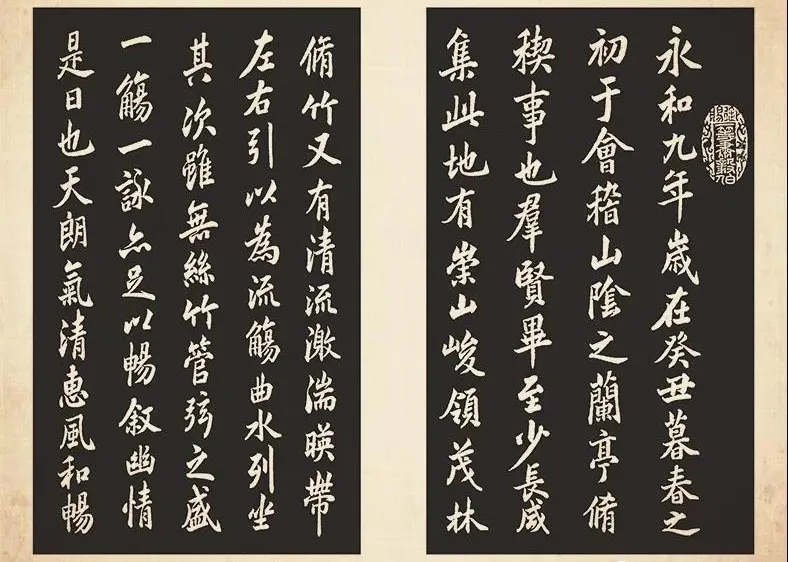 永和九年歲在癸丑暮春之
初于會稽山陰之蘭亭脩
稧事也羣賢畢至少長咸
集此地有崇山峻領茂林
脩竹又有清流激湍暎帶
左右引以為流觴曲水列坐
其次雖無絲竹管弦之盛
一觴一詠亦足以暢叙幽情
是日也天朗氣清惠風和暢